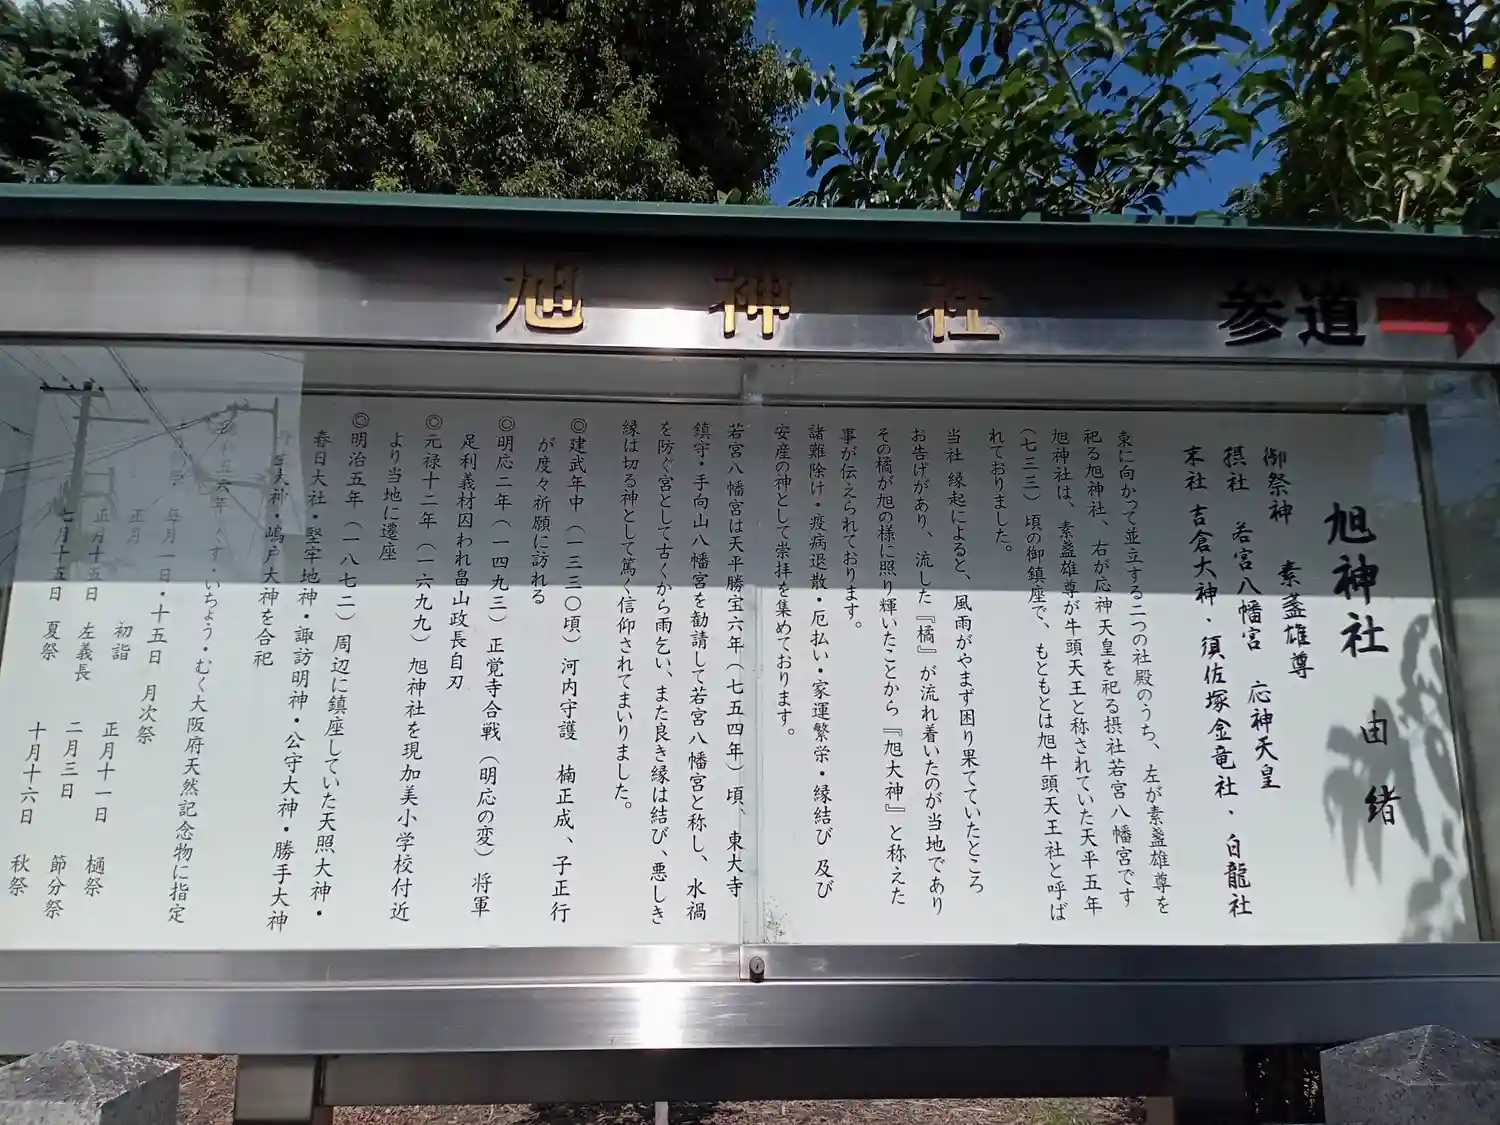 旭神社
参道
旭神社 由緒
御祭神 素盞雄尊
摂社 若宮八幡宮 応神天皇
末社 吉倉大神・須佐塚金竜社・白龍社
東に向かって並立する二つの社殿のうち、左が素盞雄尊を
祀る旭神社、右が応神天皇を祀る摂社若宮八幡宮です
旭神社は、素盞雄尊が牛頭天王と称されていた天平五年
(七三三)頃の御鎮座で、もともとは旭牛頭天王社と呼ば
れておりました。
当社 縁起によると、風雨がやまず困り果てていたところ
お告げがあり、流した『橘』が流れ着いたのが当地であり
その橘が旭の様に照り輝いたことから『旭大神』と称えた
事が伝えられております。
諸難除け・疫病退散・厄払い・家運繁栄・縁結び 及び
安産の神として崇拝を集めております。
若宮八幡宮は天平勝宝六年(七五四年)頃、東大寺
鎮守・手向山八幡宮を勧請して若宮八幡宮と称し、水禍
を防ぐ宮として古くから雨乞い、また良き縁は結び、悪しき
縁は切る神として篤く信仰されてまいりました。
◎建武年中(一三三〇頃)河内守護 楠正成、子正行
が度々祈願に訪れる
◎明応二年(一四九三)正覚寺合戦(明応の変)将軍
足利義材囚われ畠山政長自刃
◎元禄十二年(一六九九)旭神社を現加美小学校付近
より当地に遷座
◎明治五年(一八七二)周辺に鎮座していた天照大神・
春日大社・堅牢地神・諏訪明神・公守大神・勝手大神
大神・嶋戸大神を合祀
五六年 くす・いちょう・むく大阪府天然記念物に指定
毎月一日・十五日 月次祭
正月 初詣 正月十一日 樋祭
正月十五日 左義長 二月三日 節分祭
七月十五日 夏祭 十月十六日 秋祭